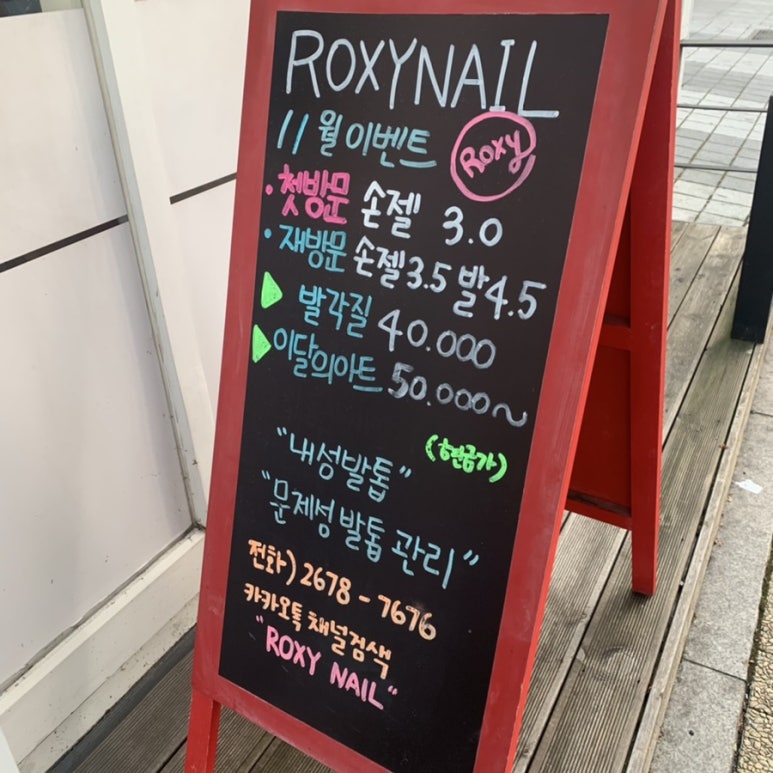 ROXYNAIL
11월 이벤트 Roxy
· 첫방문 손젤 3.0
· 재방문 손젤 3.5 발 4.5
발각질 40.000
이달의아트 50.000~
(현금가)
"내성발톱"
"문제성 발톱 관리"
전화) 2678-7676
카카오톡 채널검색
"ROXY NAIL"